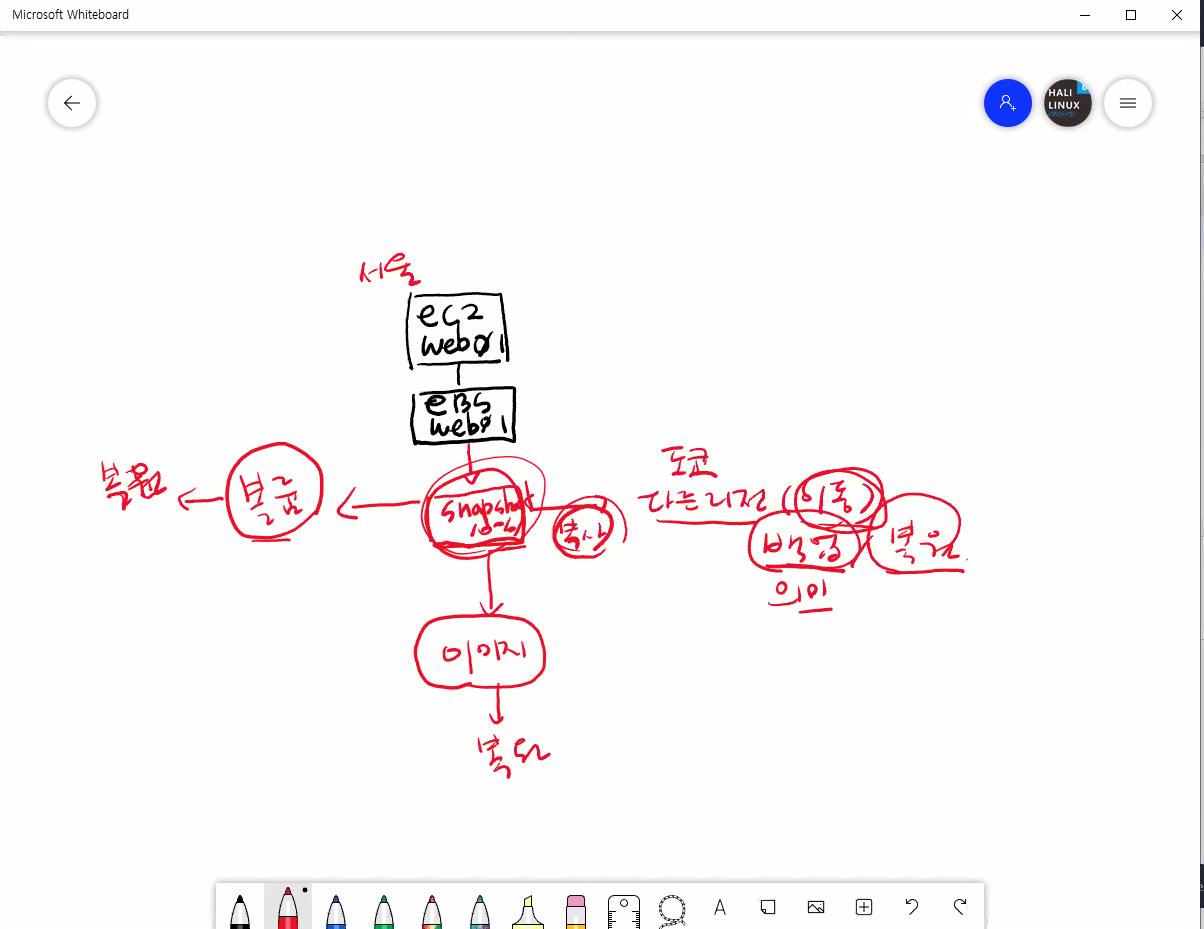 Microsoft Whiteboard
HALI
LINUX
서울
ec2
web01
eBS
web01
복원
볼륨
snapshot
복사
도쿄
다른리전 (이동)
백업
복원
의미
이미지
복원
A